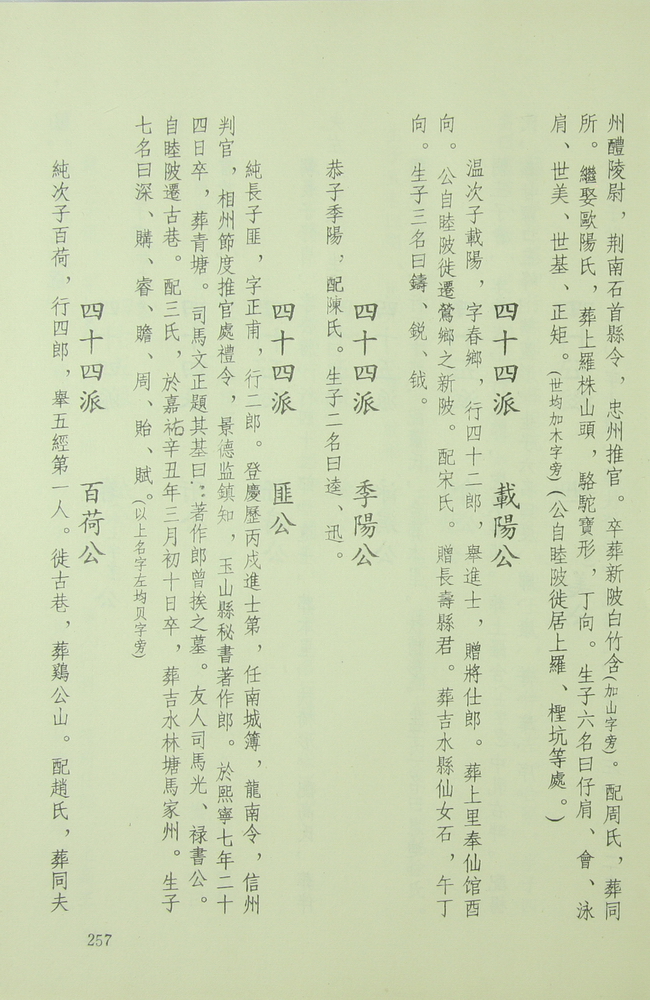 州醴陵尉，荆南石首縣令，忠州推官。卒葬新陂白竹含(加山字旁)。配周氏，葬同
所。繼娶歐陽氏，葬上羅株山頭，駱駝寶形，丁向。生子六名曰仔肩、會、泳
肩、世美、世基、正矩。(世均加木字旁)(公自睦陂徙居上羅、檉坑等處。)
四十四派　載陽公
温次子載陽，字春鄉，行四十二郎，舉進士，贈將仕郎。葬上里奉仙馆酉
向。公自睦陂徙遷鶯鄉之新陂。配宋氏。贈長壽縣君。葬吉水縣仙女石，午丁
向。生子三名曰鑄、銳、钺。
四十四派　季陽公
恭子季陽，配陳氏。生子二名曰逵、迅。
四十四派　匪公
純長子匪，字正甫，行二郎。登慶歷丙戍進士第，任南城簿，龍南令，信州
判官，相州節度推官處禮令，景德监鎮知，玉山縣秘書著作郎。於熙寧七年二十
四日卒，葬青塘。司馬文正題其基曰：著作郎曾挨之墓。友人司馬光、禄書公。
自睦陂遷古巷。配三氏，於嘉祐辛丑年三月初十日卒，葬吉水林塘馬家州。生子
七名曰深、購、睿、贍、周、貽、賦。(以上名字左均贝字旁)
四十四派　百荷公
純次子百荷，行四郎，舉五經第一人。徙古巷，葬鷄公山。配趙氏，葬同夫
257